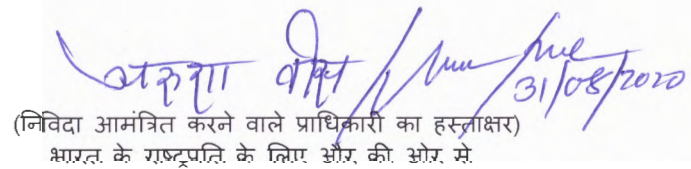 31/08/2020
(निविदा आमंत्रित करने वाले प्राधिकारी का हस्ताक्षर)
भारत के राष्ट्रपति के लिए और की ओर से